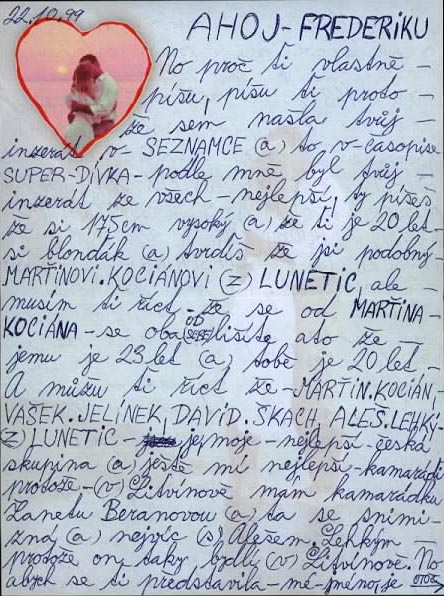 22.10.99
AHOJ-FREDERIKU
No proč ti vlastně -
píšu, píšu ti proto -
že sem našla tvůj -
inzerát v- SEZNAMCE (a) to, v-časopise
SUPER-DÍVKA- podle mně byl tvůj -
inzerát ze všech - nejlepší, ty píšeš
že si 175cm vysoký (a) že ti je 20 let-
si blonďák (a) tvrdíš že jsi podobný-
MARTINOVI.KOCIÁNOVI (Z) LUNETIC, ale -
musím ti říct - že se od MARTINA -
KOCIÁNA - se oba OD SEBE lišíte ato že -
jemu je 23 let (a) tobě je 20 let -
A můžu ti říct že - MARTIN.KOCIÁN,
VAŠEK.JELÍNEK, DAVID.ŠKACH, ALEŠ.LEHKÝ-
(Z) LUNETIC - jej moje - nejlepší - česká
skupina (a) ještě mí nejlepší - kamarádi
protože - (v) Litvínově mám kamarádku
Žanetu Beranovou (a) ta se snimi -
zná (a) nejvíc (s) Alešem. Lehkým -
protože on taky bydlý (v) Litvínově. No
abych se ti představila - mé - jméno, je
OTOČ